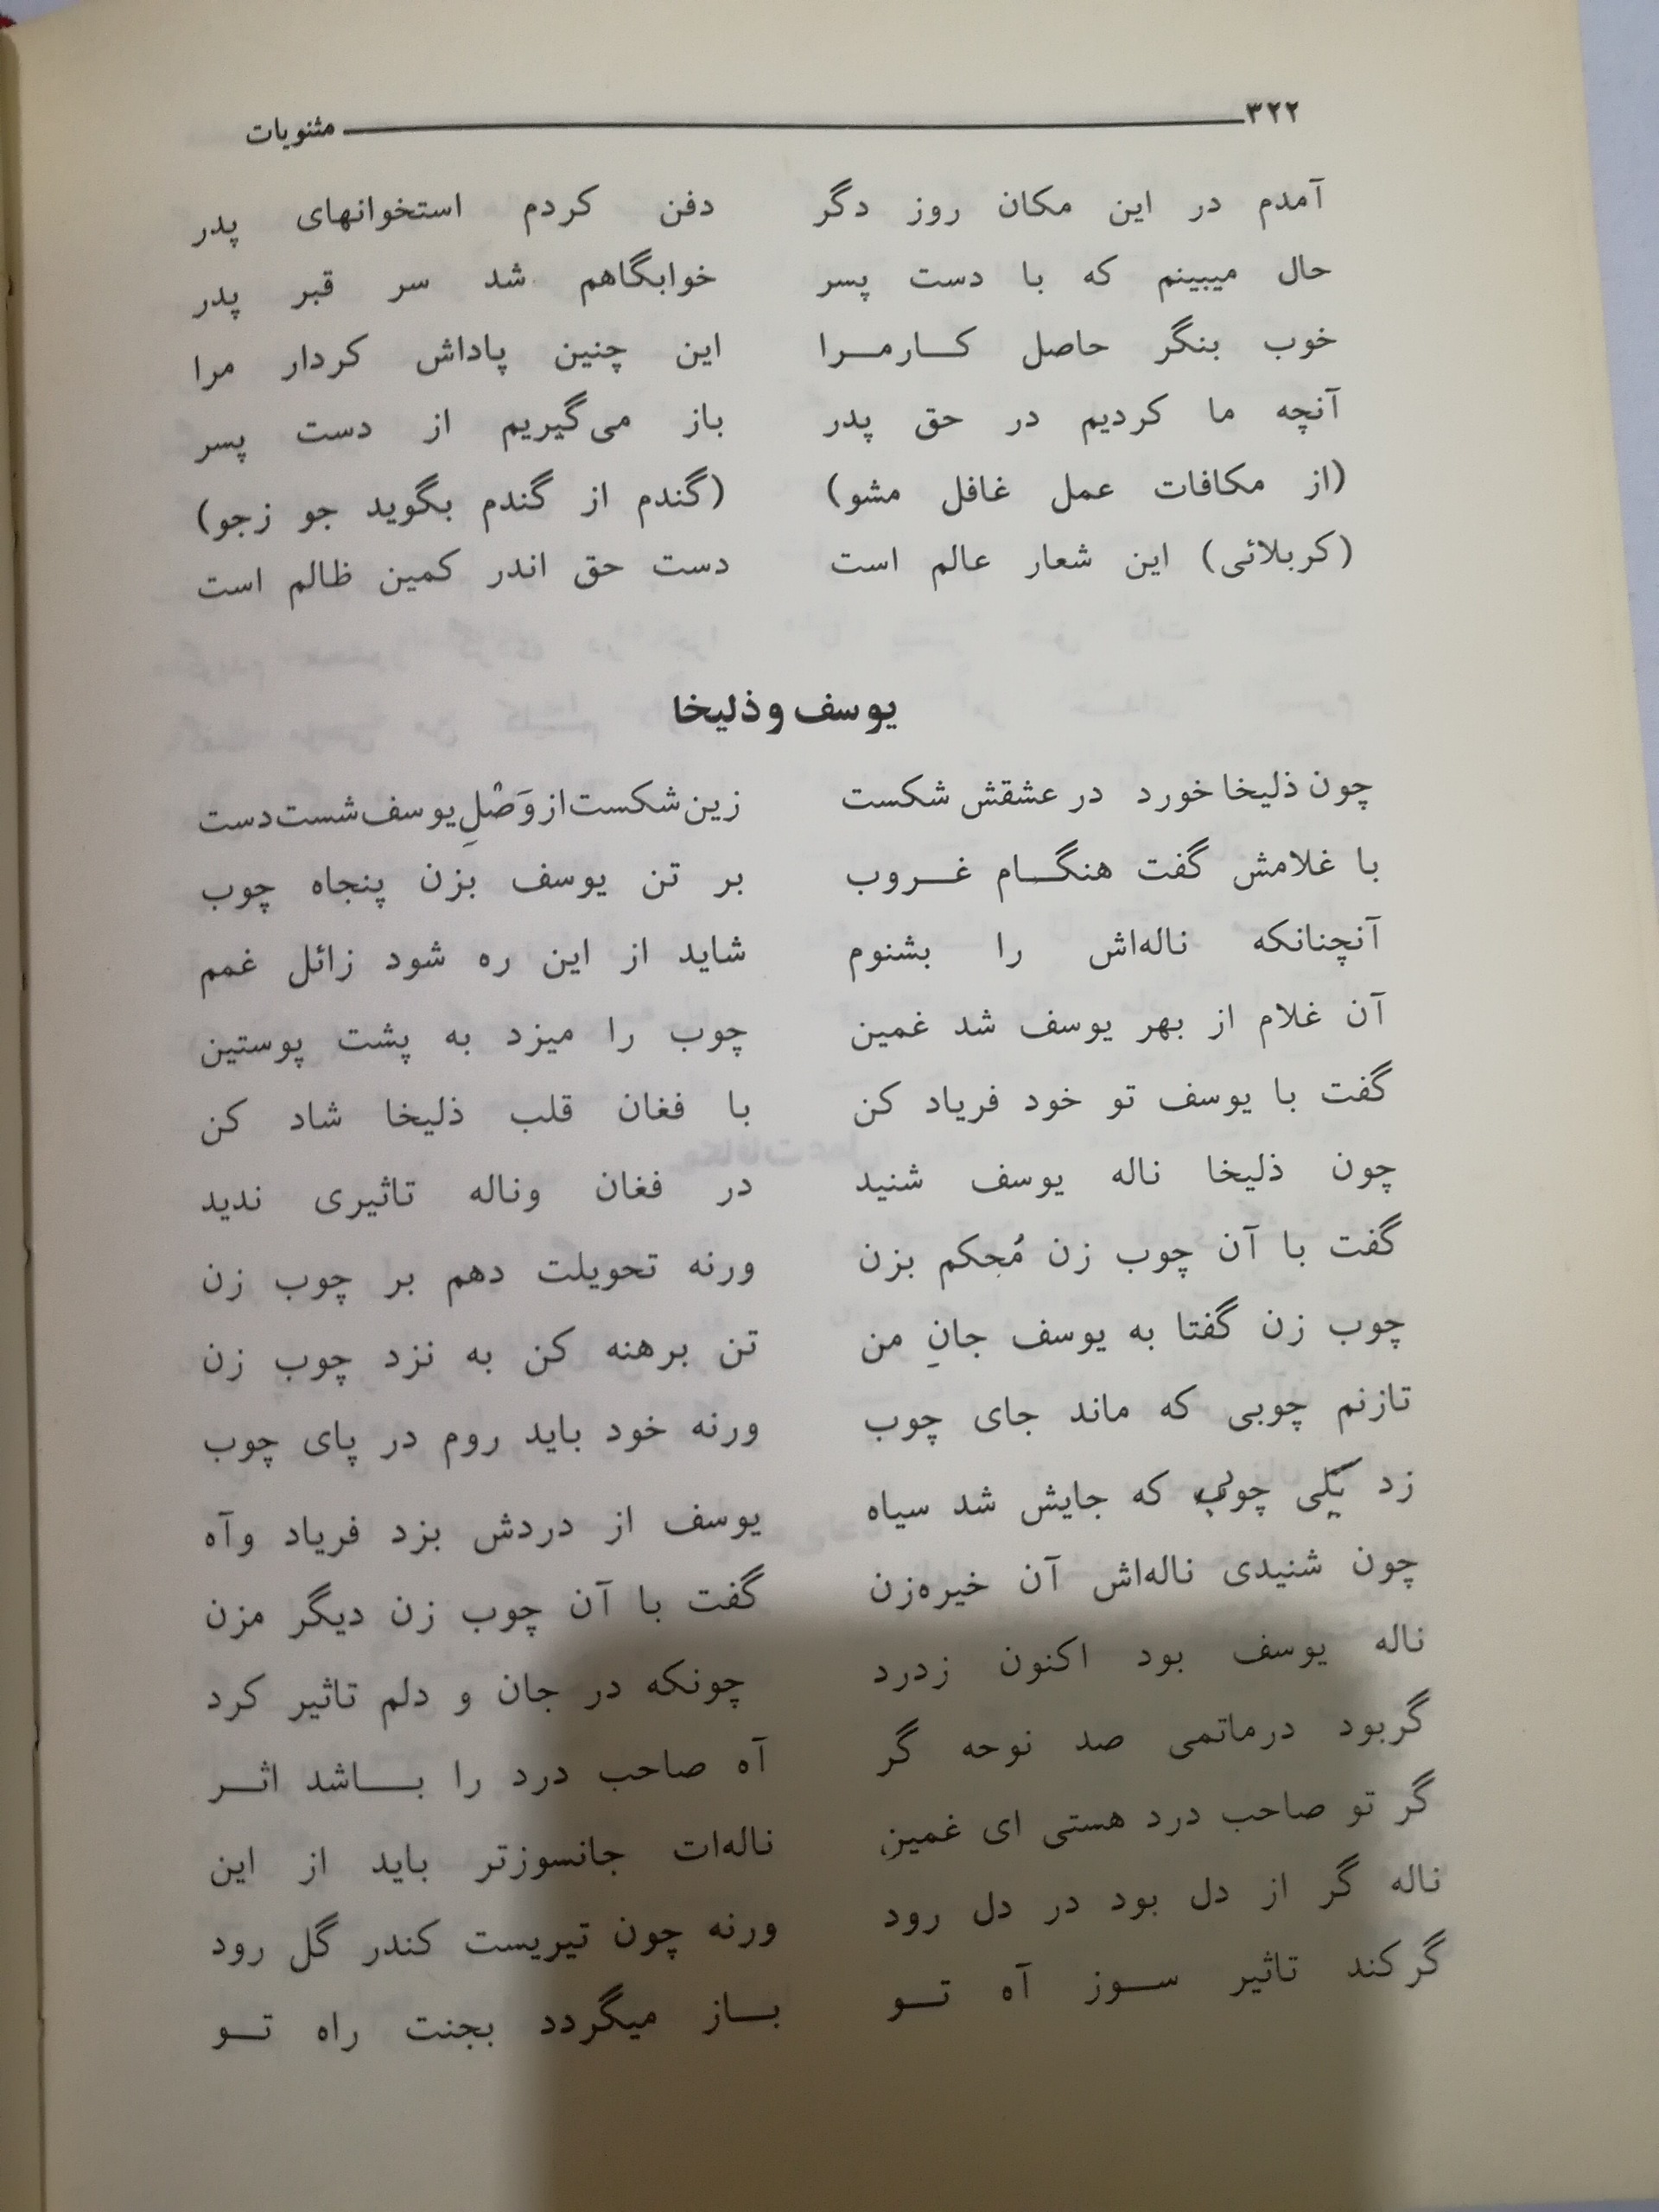 ۳۲۲ مثنویات
آمدم در این مکان روز دگر دفن کردم استخوانهای پدر
حال میبینم که با دست پسر خوابگاهم شد سر قبر پدر
خوب بنگر حاصل کارمرا این چنین پاداش کردار مرا
آنچه ما کردیم در حق پدر باز می‌گیریم از دست پسر
(از مکافات عمل غافل مشو) (گندم از گندم بگوید جو زجو)
(کربلائی) این شعار عالم است دست حق اندر کمین ظالم است
یوسف و ذلیخا
چون ذلیخا خورد در عشقش شکست زین شکست از وَصْلِ یوسف شست دست
با غلامش گفت هنگام غروب بر تن یوسف بزن پنجاه چوب
آنچنانکه ناله‌اش را بشنوم شاید از این ره شود زائل غمم
آن غلام از بهر یوسف شد غمین چوب را میزد به پشت پوستین
گفت با یوسف تو خود فریاد کن با فغان قلب ذلیخا شاد کن
چون ذلیخا ناله یوسف شنید در فغان وناله تاثیری ندید
گفت با آن چوب زن مُجکم بزن ورنه تحویلت دهم بر چوب زن
چوب زن گفتا به یوسف جانِ من تن برهنه کن به نزد چوب زن
تازنم چوبی که ماند جای چوب ورنه خود باید روم در پای چوب
زد یکی چوب که جایش شد سیاه یوسف از دردش بزد فریاد وآه
چون شنیدی ناله‌اش آن خیره‌زن گفت با آن چوب زن دیگر مزن
ناله یوسف بود اکنون زدرد چونکه در جان و دلم تاثیر کرد
گربود درماتمی صد نوحه گر آه صاحب درد را باشد اثر
گر تو صاحب درد هستی ای غمین ناله‌ات جانسوزتر باید از این
ناله گر از دل بود در دل رود ورنه چون تیریست کندر گل رود
گرکند تاثیر سوز آه تو باز میگردد بجنت راه تو